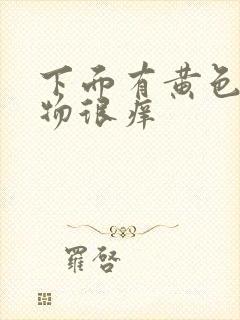 下面有黄色
物很痒
羅啓